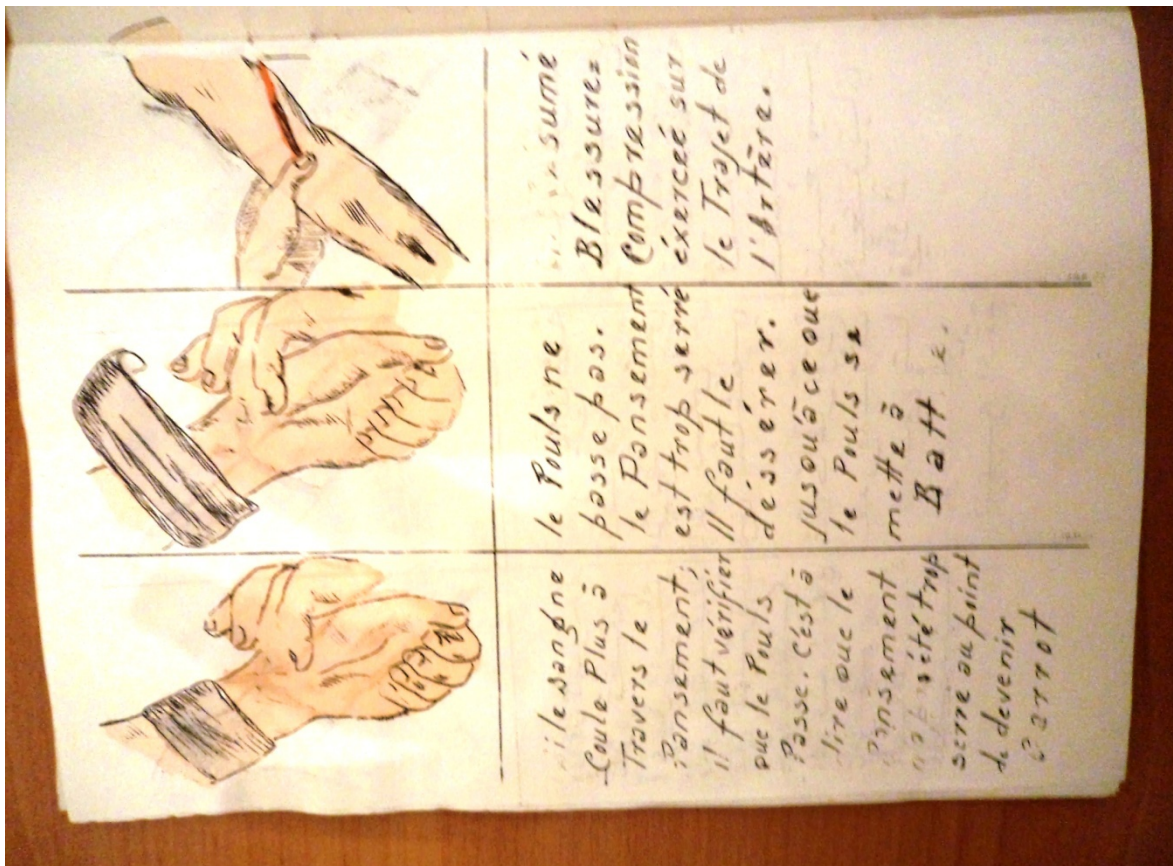 Si le sang ne
Coule Plus à
Travers le
Pansement;
il faut vérifier
que le Pouls
Passe. C'est à
dire que le
Pansement
n'a pas été trop
serré au point
de devenir
Garrot
le Pouls ne
passe pas.
le Pansement
est trop serré
Il faut le
désserér.
jusqu'à ce que
le Pouls se
mette à
Battre.
Blessure=
Compression
éxercéé sur
le Trajet de
l'Artère.